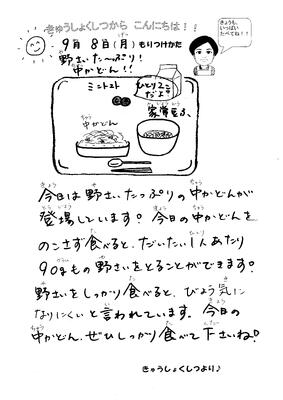 きゅうしょくしつから こんにちは!!
きょうも、
いっぱい
たべてね!!
9月 8日(月) もりつけかた
野さいた〜っぷり!
中かどん!!
ミニトマト
ひとり2こ
だよ
家常豆ふ
中かどん
今日は野さいたっぷりの中かどんが
登場しています。今日の中かどんを
のこさず食べると、だいたい1人あたり
90gもの野さいをとることができます。
野さいをしっかり食べると、びょう気に
なりにくいと言われています。今日の
中かどん、ぜひしっかり食べて下さいね。
きゅうしょくしつより♪